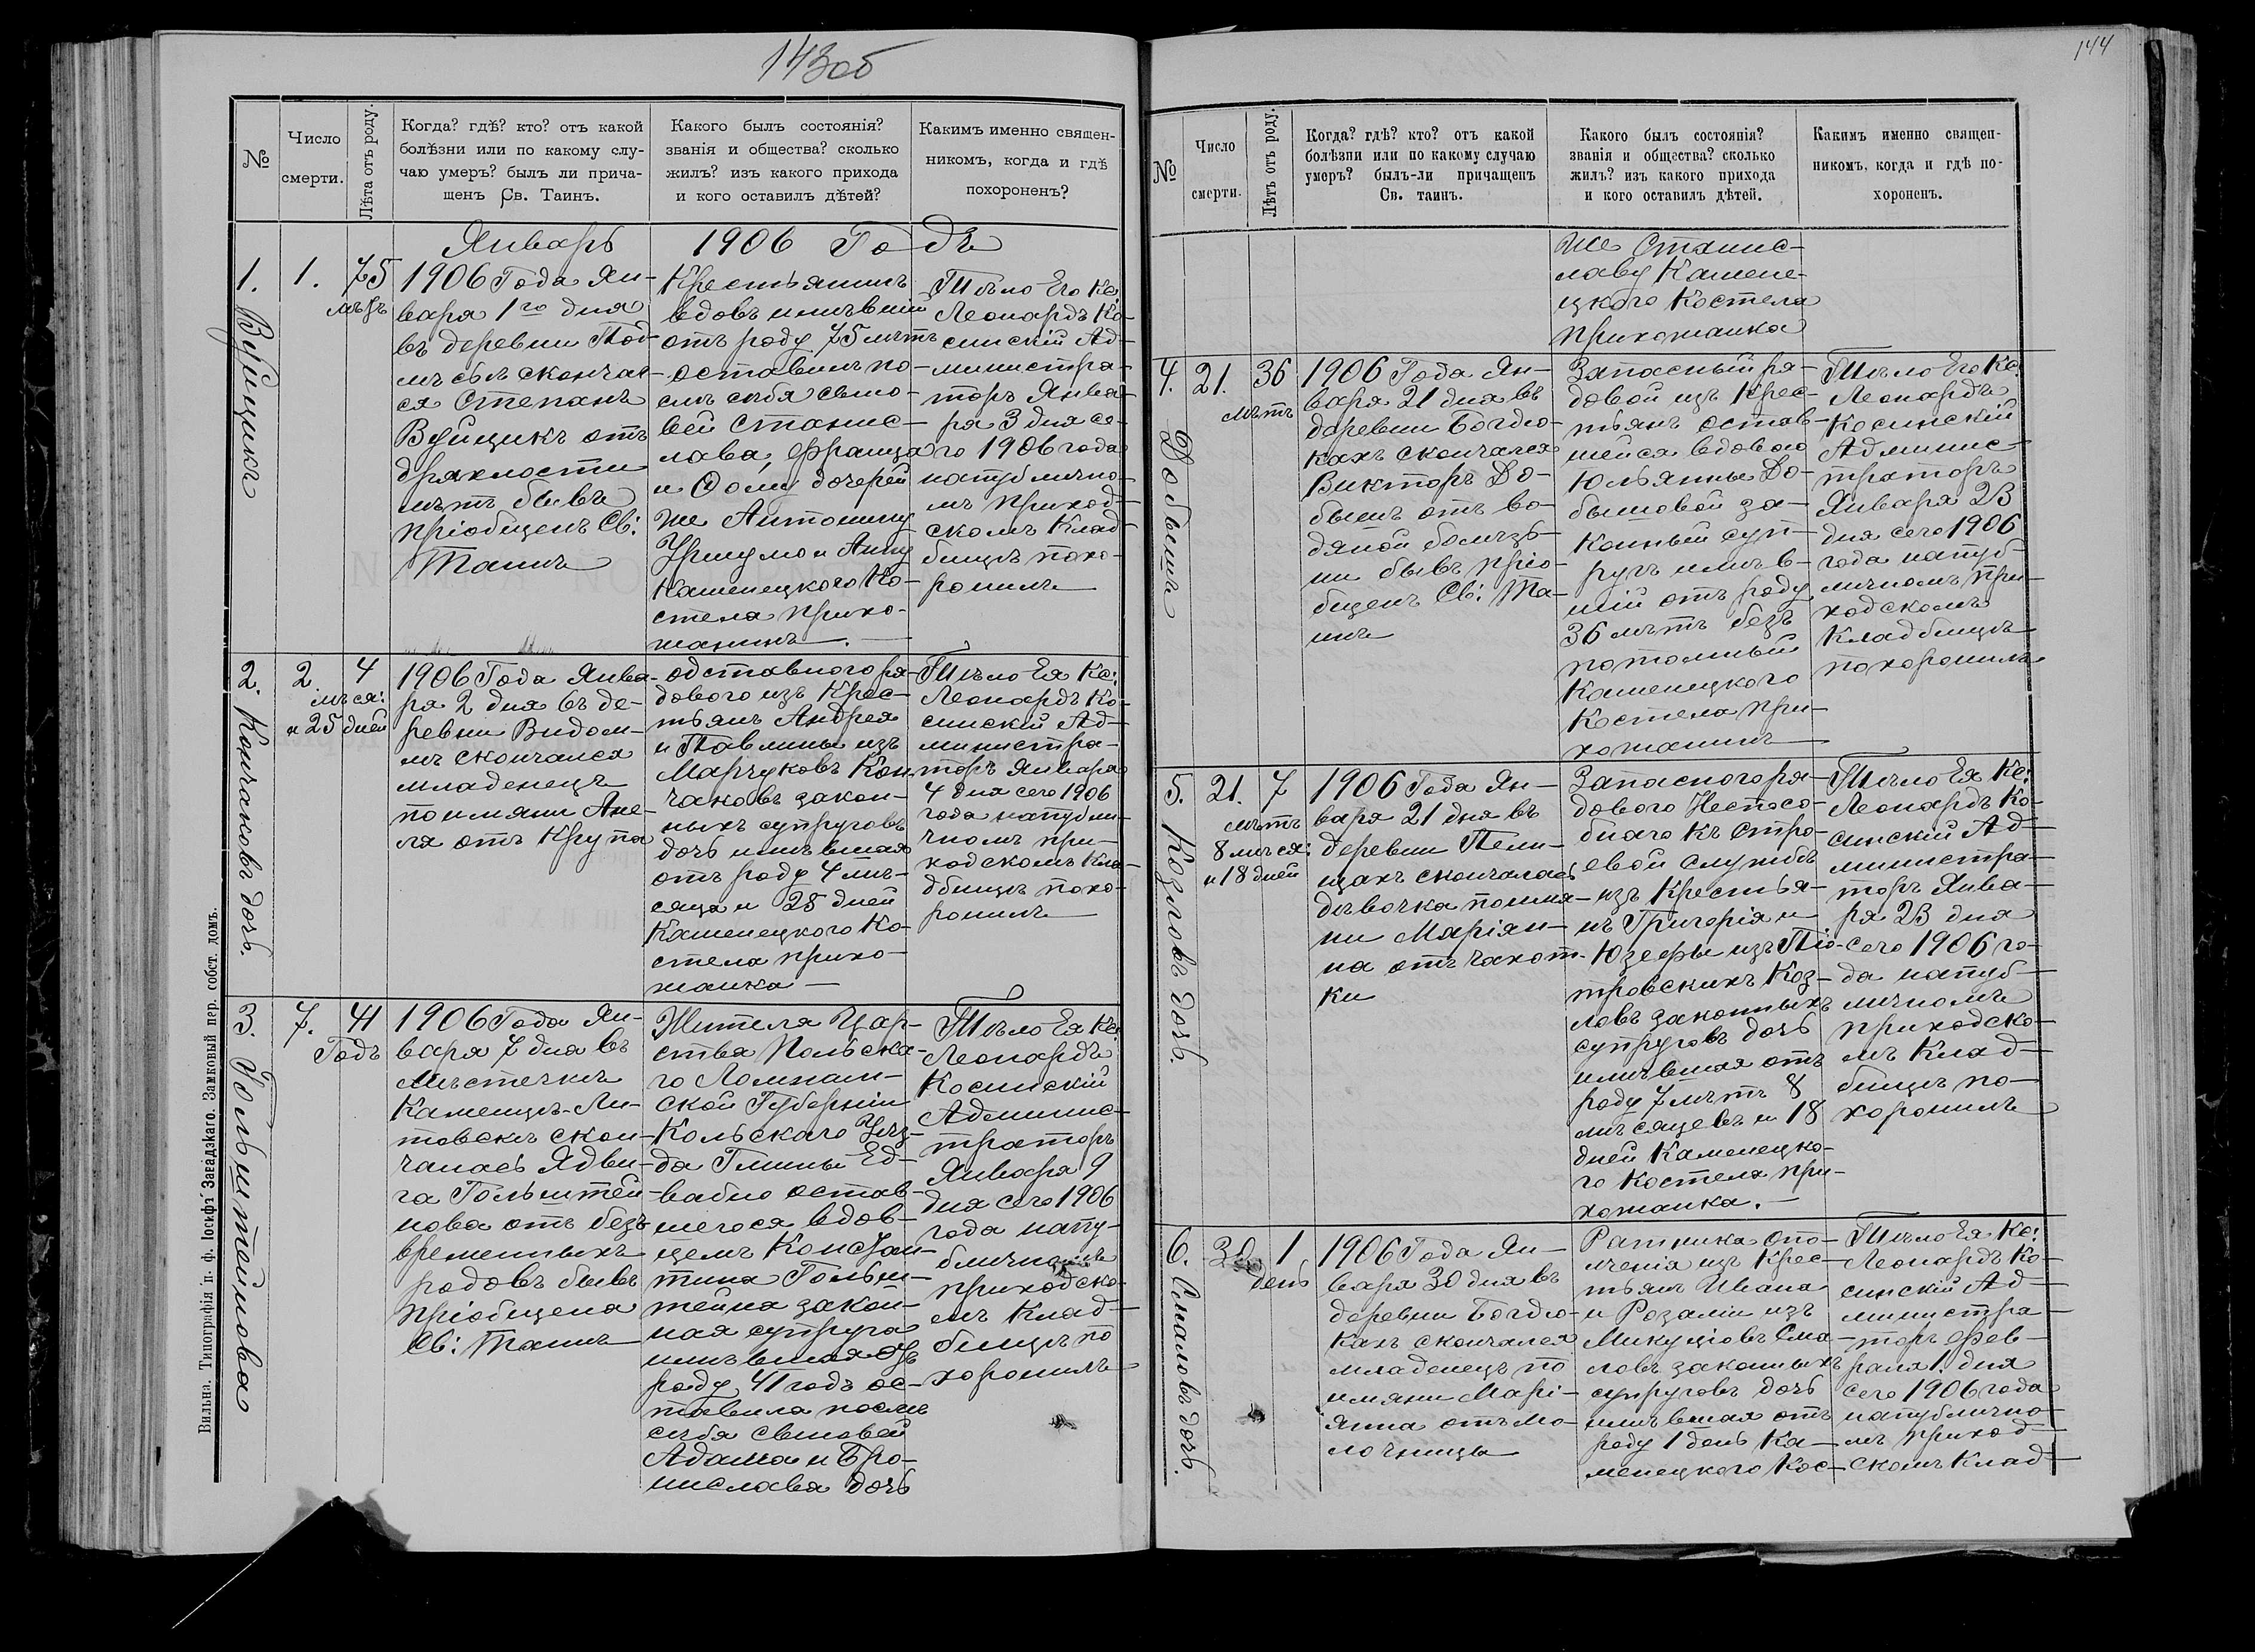 143об
№
Число
смерти.
Лѣта отъ роду.
Когда? гдѣ? кто? отъ какой
болѣзни или по какому слу-
чаю умеръ? былъ ли прича-
щенъ Св. Таинъ.
Какого былъ состоянія?
званія и общества? сколько
жилъ? изъ какого прихода
и кого оставилъ дѣтей?
Какимъ именно священ-
никомъ, когда и гдѣ
похороненъ?
Январь 1906 Годъ
1.
Вуйщикъ
1.
75
лѣтъ
1906 Года Ян-
варя 1го дня
въ деревни Под-
лѣсьѣ скончал-
ся Степанъ
Вуйщикъ отъ
дряхлости
лѣтъ бывъ
пріобщенъ Св:
Таинъ
Крестьянинъ
вдовъ имѣвшій
отъ роду 75 лѣтъ
оставилъ по-
слѣ себя сыно-
вей Станис-
лава, Франца
и Фому дочерей
же Антонину
Уршулю и Анну
Каменецкого Ко-
стела прихо-
жанинъ.
Тѣло Его Кс:
Леонардъ Ко-
синскій Ад-
министра-
торъ Янва-
ря 3 дня се-
го 1906 года
напублично-
мъ приход-
скомъ Клад-
бищѣ похо-
ронилъ
2.
Кончаковъ дочь.
2
4
мѣся:
и 25 дней
1906 Года Янва-
ря 2 дня въ де-
ревни Видом-
лѣ скончался
младенецъ
поимяни Ане-
ля отъ Крупа
одставного ря-
дового изъ Крес-
тьянъ Андрея
и Павлины изъ
Марчуковъ Кон-
чаковъ закон-
ныхъ супруговъ
дочь имѣвшая
отъ роду 4 мѣ-
сяца и 25 дней
Каменецкого Ко-
стела прихо-
жанка
Тѣло Ея Кс:
Леонардъ Ко-
синскій Ад-
министра-
торъ Января
4 дня сего 1906
года напубли-
чномъ при-
ходскомъ Кла-
дбищѣ похо-
ронилъ
3.
Гольштейнова
7.
41
Годъ
1906 Года Ян-
варя 7 дня въ
Мѣстечкѣ
Каменцѣ-Ли-
товскѣ скон-
чалась Ядви-
га Гольштей-
нова отъ без-
временныхъ
родовъ бывъ
пріобщена
Св: Таинъ
Жителя Цар-
ства Польска-
го Ломжин-
ской Губерніи
Кольскаго Уѣз-
да Гмины Ед-
вабно остав-
шегося вдов-
цемъ Констан-
тина Гольш-
тейна закон-
ная супруга
имѣвшая отъ
роду 41 годъ ос-
тавила послѣ
себя сыновей
Адама и Бро-
нислава дочь
Тѣло Ея Кс:
Леонардъ
Косинскій
Админис-
траторъ
Января 9
дня сего 1906
года напу-
бличномъ
приходско-
мъ Клад-
бищѣ по
хоронилъ
Вильна. Типографія п. ф. Іосифъ Завадзкаго. Замковый пер. собст. домъ.
144
№
Число
смерти.
Лѣтъ отъ роду.
Когда? гдѣ? кто? отъ какой
болѣзни или по какому случаю
умеръ? былъ-ли причащенъ
Св. таинъ.
Какого былъ состоянія?
званія и общества? сколько
жилъ? изъ какого прихода
и кого оставилъ дѣтей.
Какимъ именно священ-
никомъ, когда и гдѣ по-
хороненъ.
же Станис-
лаву Камене-
цкого Костела
прихожанка
4.
Добышъ
21.
36
лѣтъ
1906 Года Ян-
варя 21 дня въ
деревни Богдю-
кахъ скончался
Викторъ До-
бышъ отъ во-
дяной болѣз-
ни бывъ пріо-
бщенъ Св: Та-
инъ
Запасный ря-
довой изъ Крес-
тьянъ остав-
шейся вдовою
Юльянны До-
бышовой за-
конный суп-
ругъ имѣв-
шій отъ роду
36 лѣтъ безъ
потомный
Каменецкого
Костела при-
хожанинъ
Тѣло Его Кс:
Леонардъ
Косинскій
Админис-
траторъ
Января 23
дня сего 1906
года напуб-
личномъ при-
ходскомъ
Кладбищѣ
похоронилъ
5.
Козловъ дочь.
21.
7
лѣтъ
8 мѣся:
и 18 дней
1906 Года Ян-
варя 21 дня въ
деревни Пели-
щахъ скончалась
дѣвочка поимя-
ни Маріян-
на отъ чахот-
ки
Запасного ря-
дового Неспосо-
бнаго къ стро-
евой службѣ
изъ Крестья-
нъ Григорія и
Юзефы изъ Піо-
тровскихъ Коз-
ловъ законныхъ
супруговъ дочь
имѣвшая отъ
роду 7 лѣтъ 8
мѣсяцевъ и 18
дней Каменецко-
го Костела при-
хожанка.
Тѣло Ея Кс:
Леонардъ Ко-
синскій Ад-
министра-
торъ Янва-
ря 23 дня
сего 1906 го-
да напуб-
личномъ
приходско-
мъ Клад-
бищѣ по-
хоронилъ
6.
Смаловъ дочь.
30
1
день
1906 Года Ян-
варя 30 дня въ
деревни Богдю-
кахъ скончался
младенецъ по
имяни Марі-
янна отъ мо-
лочницы
Ратника опо-
лченія изъ Крес-
тьянъ Ивана
и Розаліи изъ
Микуціовъ Сма-
ловъ законныхъ
супруговъ дочь
имѣвшая отъ
роду 1 день Ка-
менецкого Кос-
Тѣло Ея Кс:
Леонардъ Ко-
синскій Ад-
министра-
торъ Фев-
раля 1. дня
сего 1906 года
напублично-
мъ приход-
скомъ Клад-